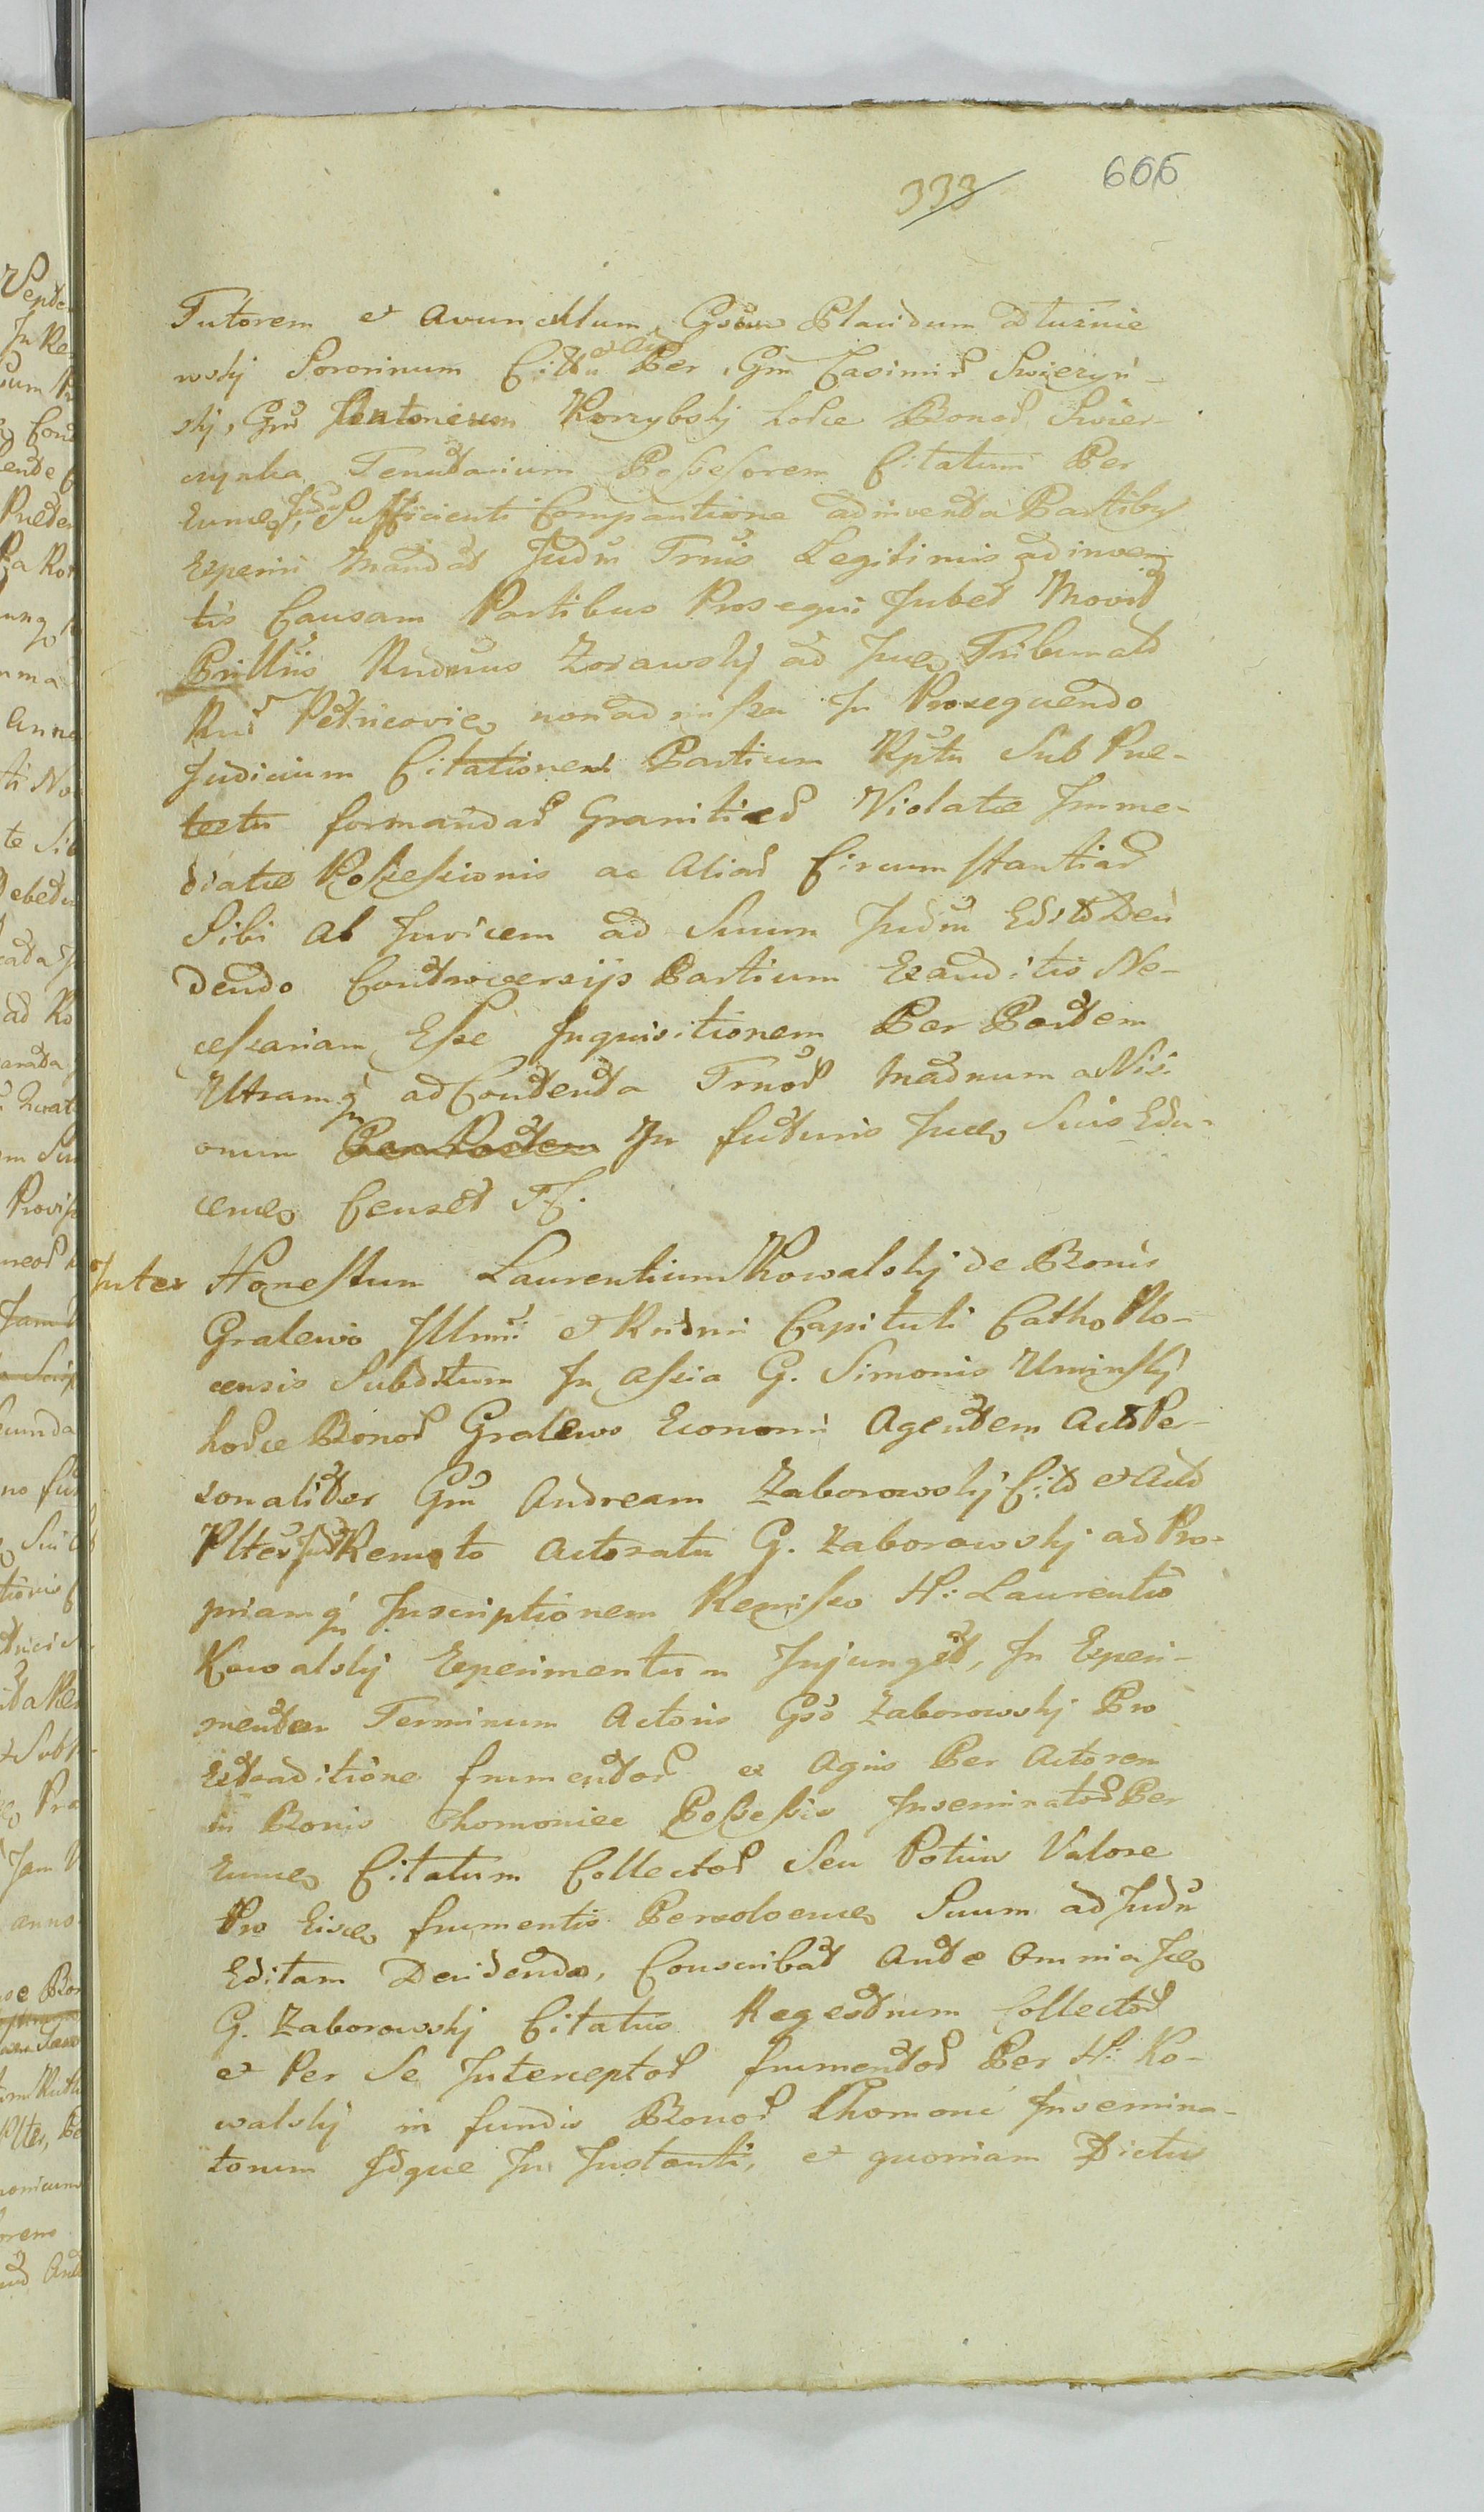 333 665
Tutorem et Avunculum, Gsum Placidum Dłuznie
wskj Sororinum Cittu et Act Per, Gm Casimir Swiezyń-
skj, Gm Antonium Korzybskj hodie Bonor Swier-
czynka Tenutarium Possesorem Citatum Per
Eume, Judm Sufficienti Comparitione adinventa Partibus
Experiri Mandat Judm Trnis Legitimis adinven-
tis Causam Partibus Prosequi Jubet Movit
Rndmus Zorawskj ad Juce Tribunald
Rni Petricovie non admissa In Prosequendo
Judicium Citationem Partium Rptu Sub Prae-
textu formandar Granitier Violatae Imme-
diatae Possessionis ac Aliar Circumstantiar
Sibi Ab Invicem ad Suum Judm Edit Deci
dendo Controversijs Partium Exauditis Ne-
cessariam Esse Inquisitionem Per Partem
Utramq ad Contenta Trnor
onum Per Partem In futuris Juce Suis Edu-
ceme Censet Tf.
Inter Honestum Laurentium Kowalskj de Bonis
Gralewo Illmi et Rndmi Capituli Catho Plo-
censis Subditum In assia G. Simonis Uminskj
hodie Bonor Gralewo Economi Agentem Act Per-
sonaliter Gm Andream Zaborowskj Citt et Act
Plter Judm Remoto Actoratu G. Zaborowskj ad Pro-
priamq Inscriptionem Remisso H: Laurentio
Kowalskj Experimentum Injunget, In Experi-
mentum Terminum Actoris Gso Zaborowskj Pro
Extraditione frumentor ex Agris Per Actorem
in Bonis Chomoniec Possessis Inseminator Per
Eume Citatum Collector Seu Potius Valore
Pro Eisce frumentis Persolveme Suum ad Judm
Editam Decidendo, Conscribat Ante Omnia Jce
G. Zaborowskj Citatus Regestrum Collector
et Per Se Interceptor frumentor Per H: Ko-
walskj in fundis Bonor Chomonc Insemina-
torum Idque In Instanti, et quoniam Dictus